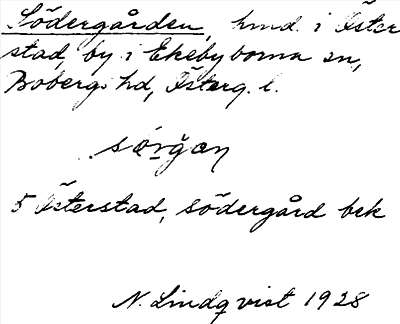 Södergården, hmd. i Öster
stad, by i Ekebyborna sn,
Bobergs hd, Österg. l.
sörgan
5 Österstad, södergård bek
N. Lindqvist 1928